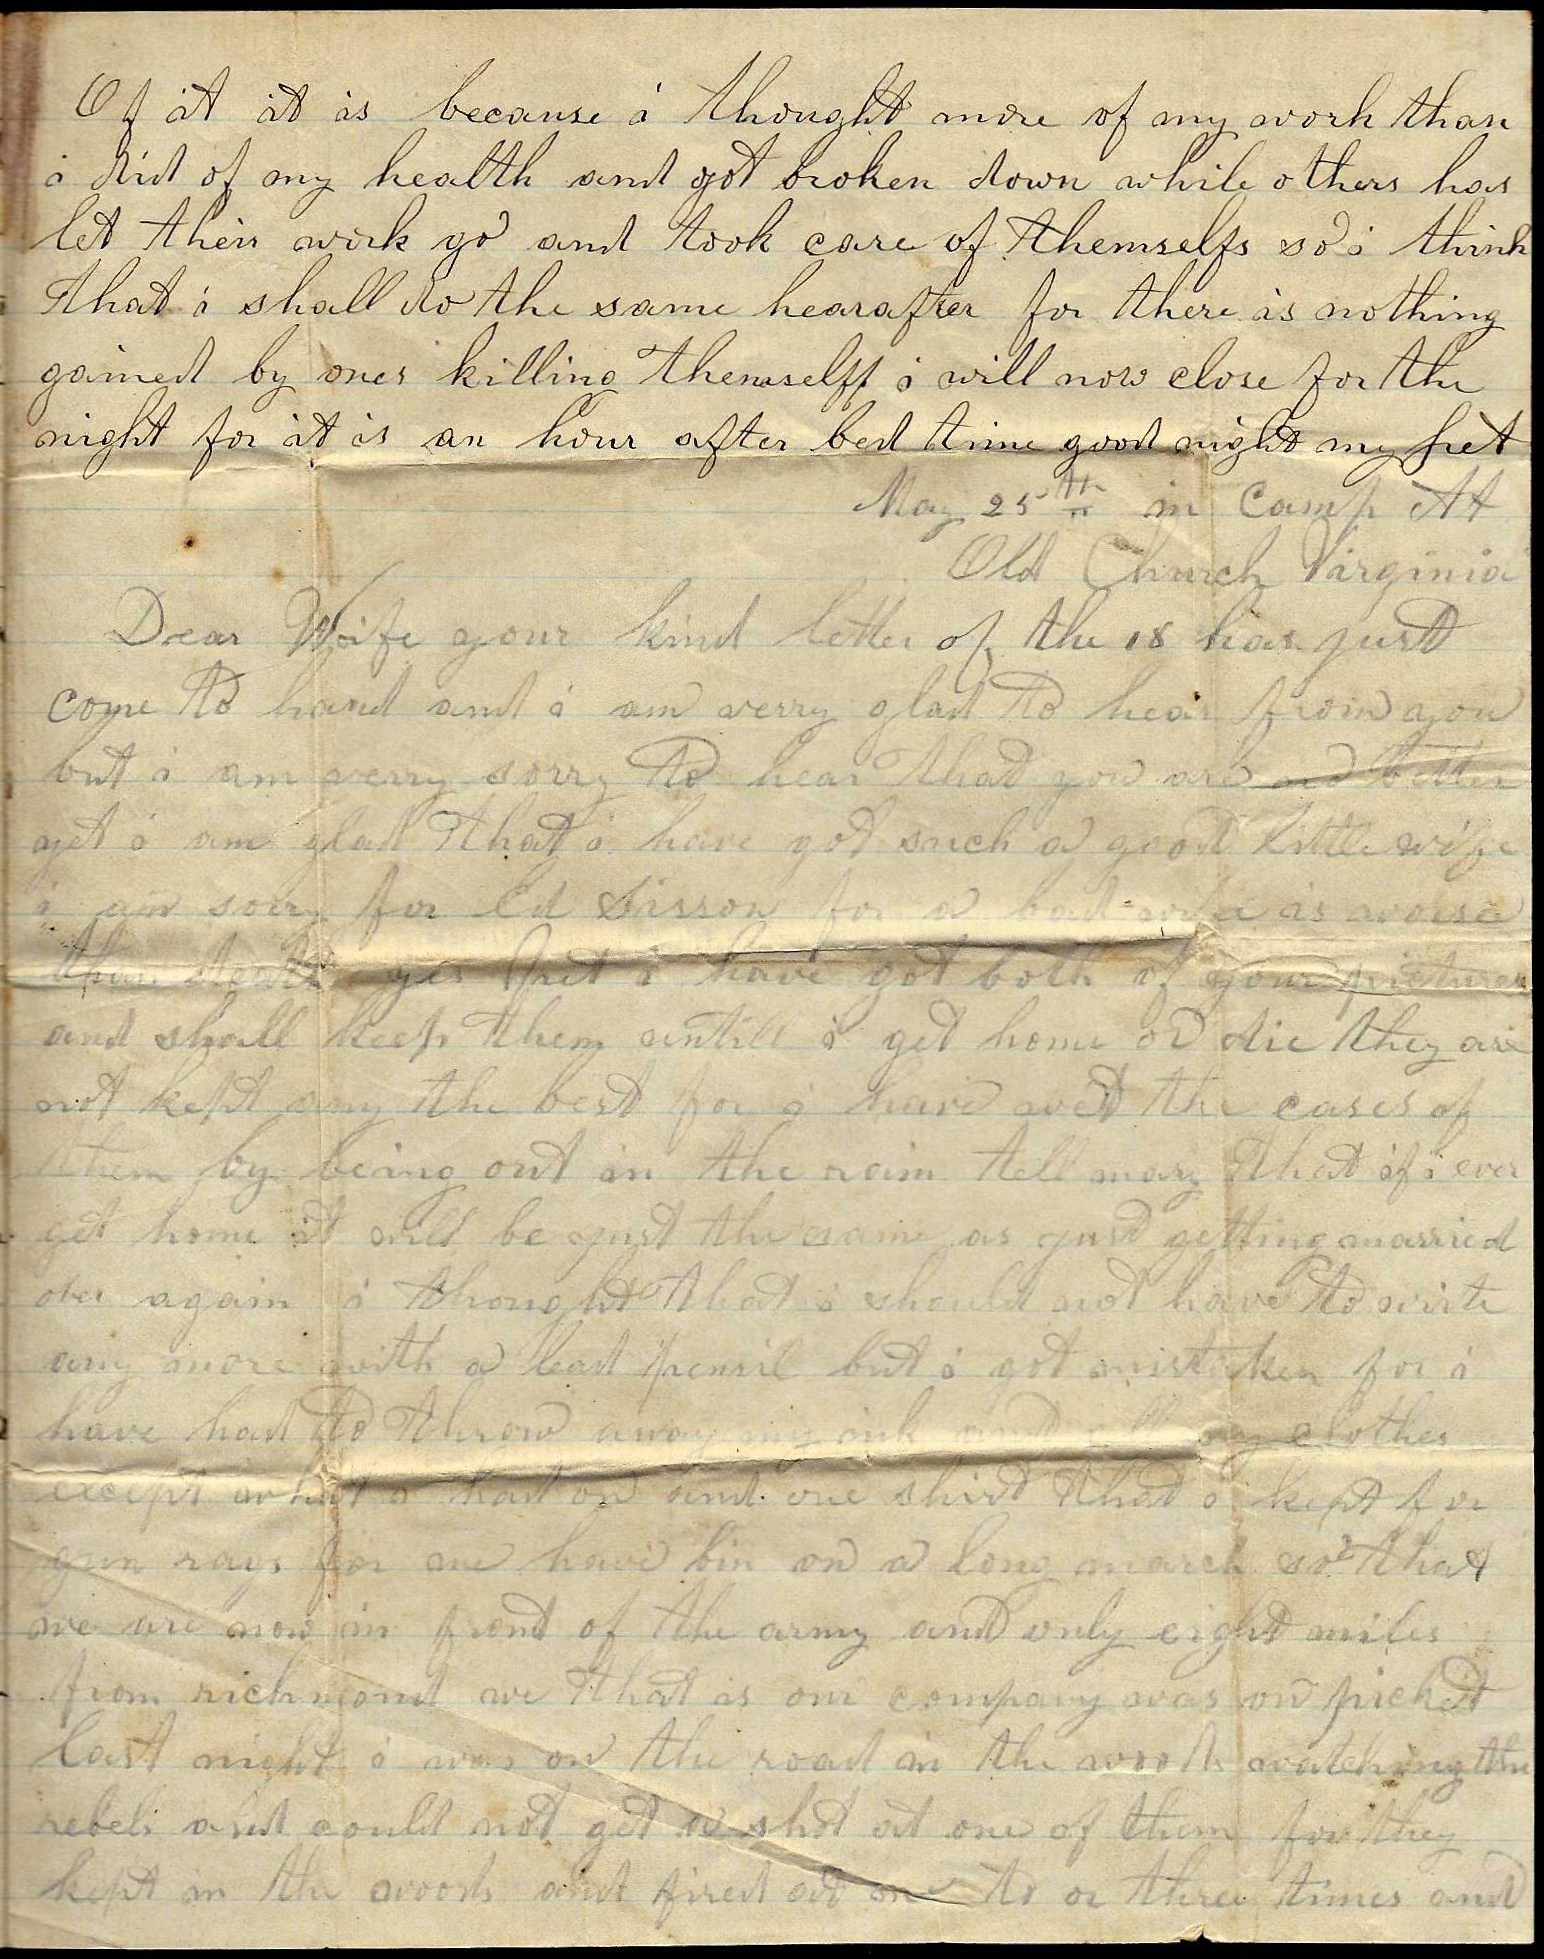 Of it it is because i thought more of my work than
i did of my health and got broken down while others has
let their work go and took care of themselfs so i think
that i shall do the same hearafter for there is nothing
gained by ones killing themselff i will now close for the
night for it is an hour after bed time good night my pet
May 25th in Camp At
Old Church Virginia
Dear Wife your kind letter of the 18 has just
come to hand and i am verry glad to hear from you
but i am verry sorry to hear that you are no better
yet i am glad that i have got such a good little wife
i am sorry for Ed Sisson for a bad wife is worse
than death yes pet i have got both of your pictures
and shall keep them untill i get home or die they are
not kept any the best for i have wet the cases of
them by being out in the rain tell mary that if i ever
get home it will be just the same as just getting married
over again i thought that i should not have to write
any more with a lead pensil but i got mistaken for i
have had to throw away my ink and all my clothes
except what i had on and one shirt that i kept for
gun rags for we have bin on a long march so that
we are now in front of the army and only eight miles
from richmond we that is our company was on picket
last night i was on the road in the woods watching the
rebels and could not get a shot at one of them for they
kept in the woods and fired at one to or three times and